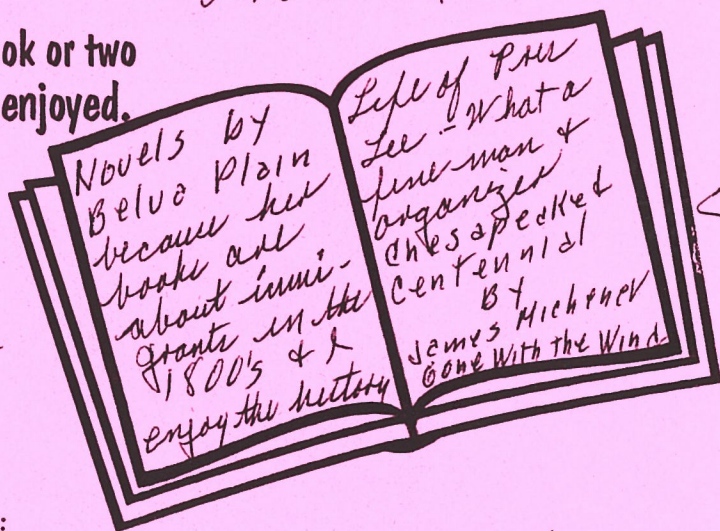 ok or two
enjoyed.
Novels by
Belva Plain
because her
books are
about immi-
grants in the
1800's & I
enjoy the history
Life of Pres
Lee - What a
fine man &
organizer
Chesapeake &
Centennial
By
James Michener
Gone With the Wind
: